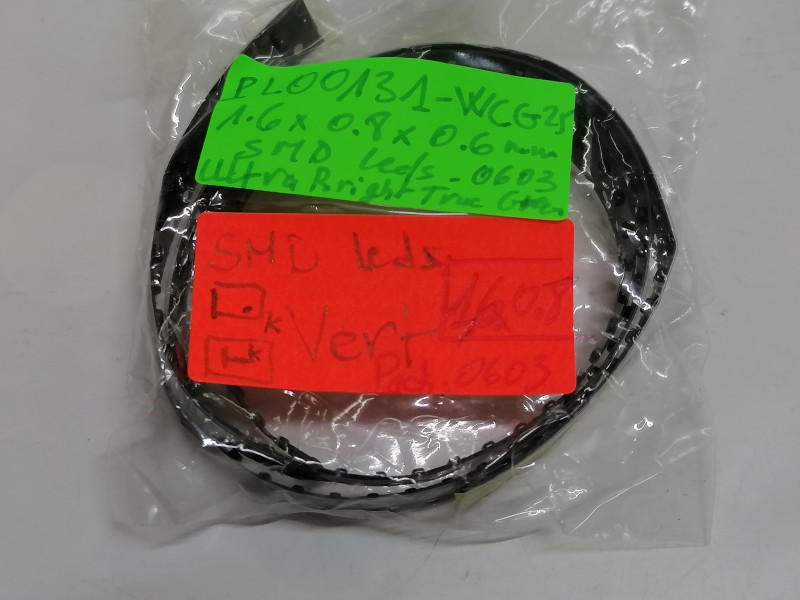 PL00131-WCG25
1.6 x 0.8 x 0.6 mm
SMD leds - 0603
Ultra Bright True Green
SMD leds
K
Vert
1.6 0.8
K
0603